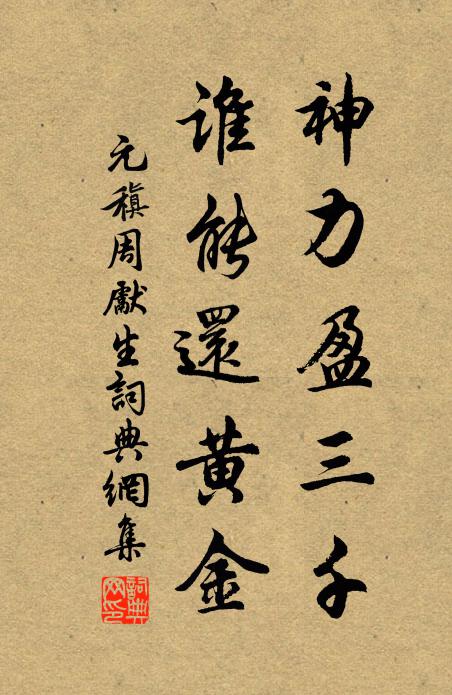 神力盈三千
誰能還黃金
元稹周獻生詞典網集
詞典网印